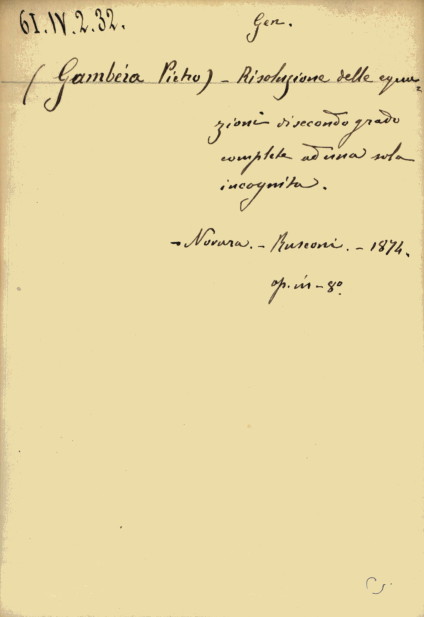 61.IV.2.32.
Gen.
(Gambéra Pietro) - Risoluzione delle equa-
zioni di secondo grado
complete ad una sola
incognita.
- Novara. - Rusconi. - 1874.
op. in - 8º.